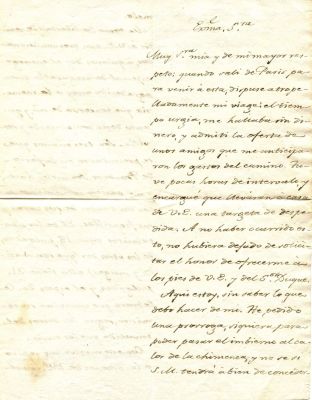 Exma. Sra.
Muy Sra. mia y de mi mayor res-
peto: quando salí de Paris pa-
ra venir á esta, dispuse atrope-
lladamente mi viage: el tiem-
po urgía, me hallaba sin di-
nero, y admití la oferta de
unos amigos que me anticipa-
ron los gastos del camino. Tu-
ve pocas horas de intervalo y
encargué que llevaran a casa
de V.E. una targeta de despe-
dida. A no haber ocurrido es-
to, no hubiera dejado de solici-
tar el honor de ofrecerme a
los pies de V.E. y del Sor. Duque.
Aqui estoy, sin saber lo que
debo hacer de mi. He pedido
una prorroga, siquiera para
poder pasar el imbierno al ca-
lor de la chimenea, y no se si
S.M. tendrá a bien de conceder-